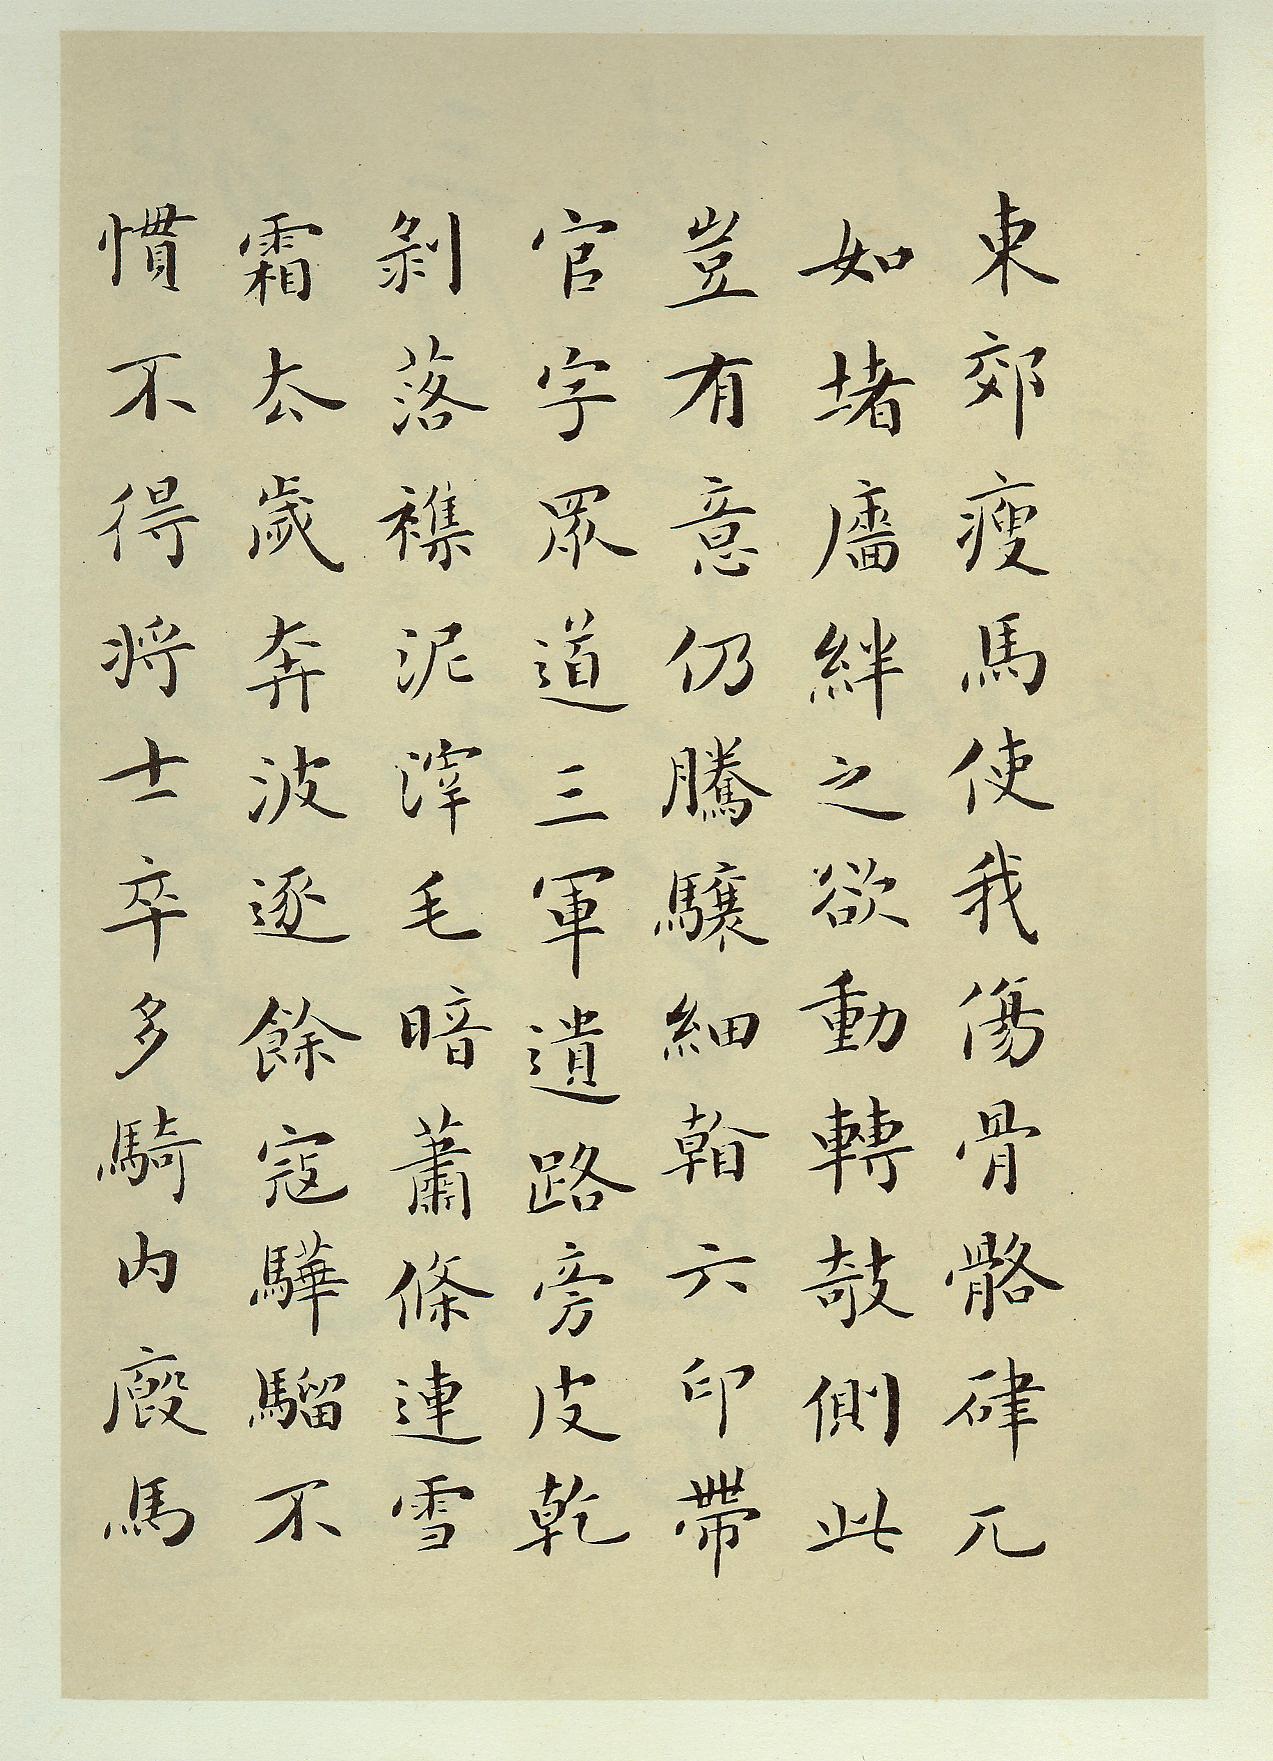 東郊瘦馬使我傷骨骼硉兀
如堵牆絆之欲動轉欹側此
豈有意仍騰驤細看六印帶
官字眾道三軍遺路旁皮乾
剝落雜泥滓毛暗蕭條連雪
霜去歲奔波逐餘寇驊騮不
慣不得將士卒多騎內廄馬